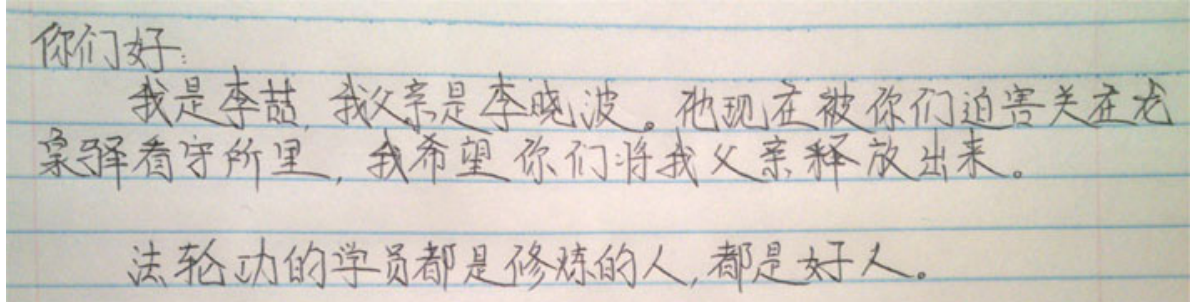 你们好:
我是李喆,我父亲是李晓波。他现在被你们迫害关在龙
泉驿看守所里,我希望你们将我父亲释放出来。
法轮功的学员都是修炼的人,都是好人。